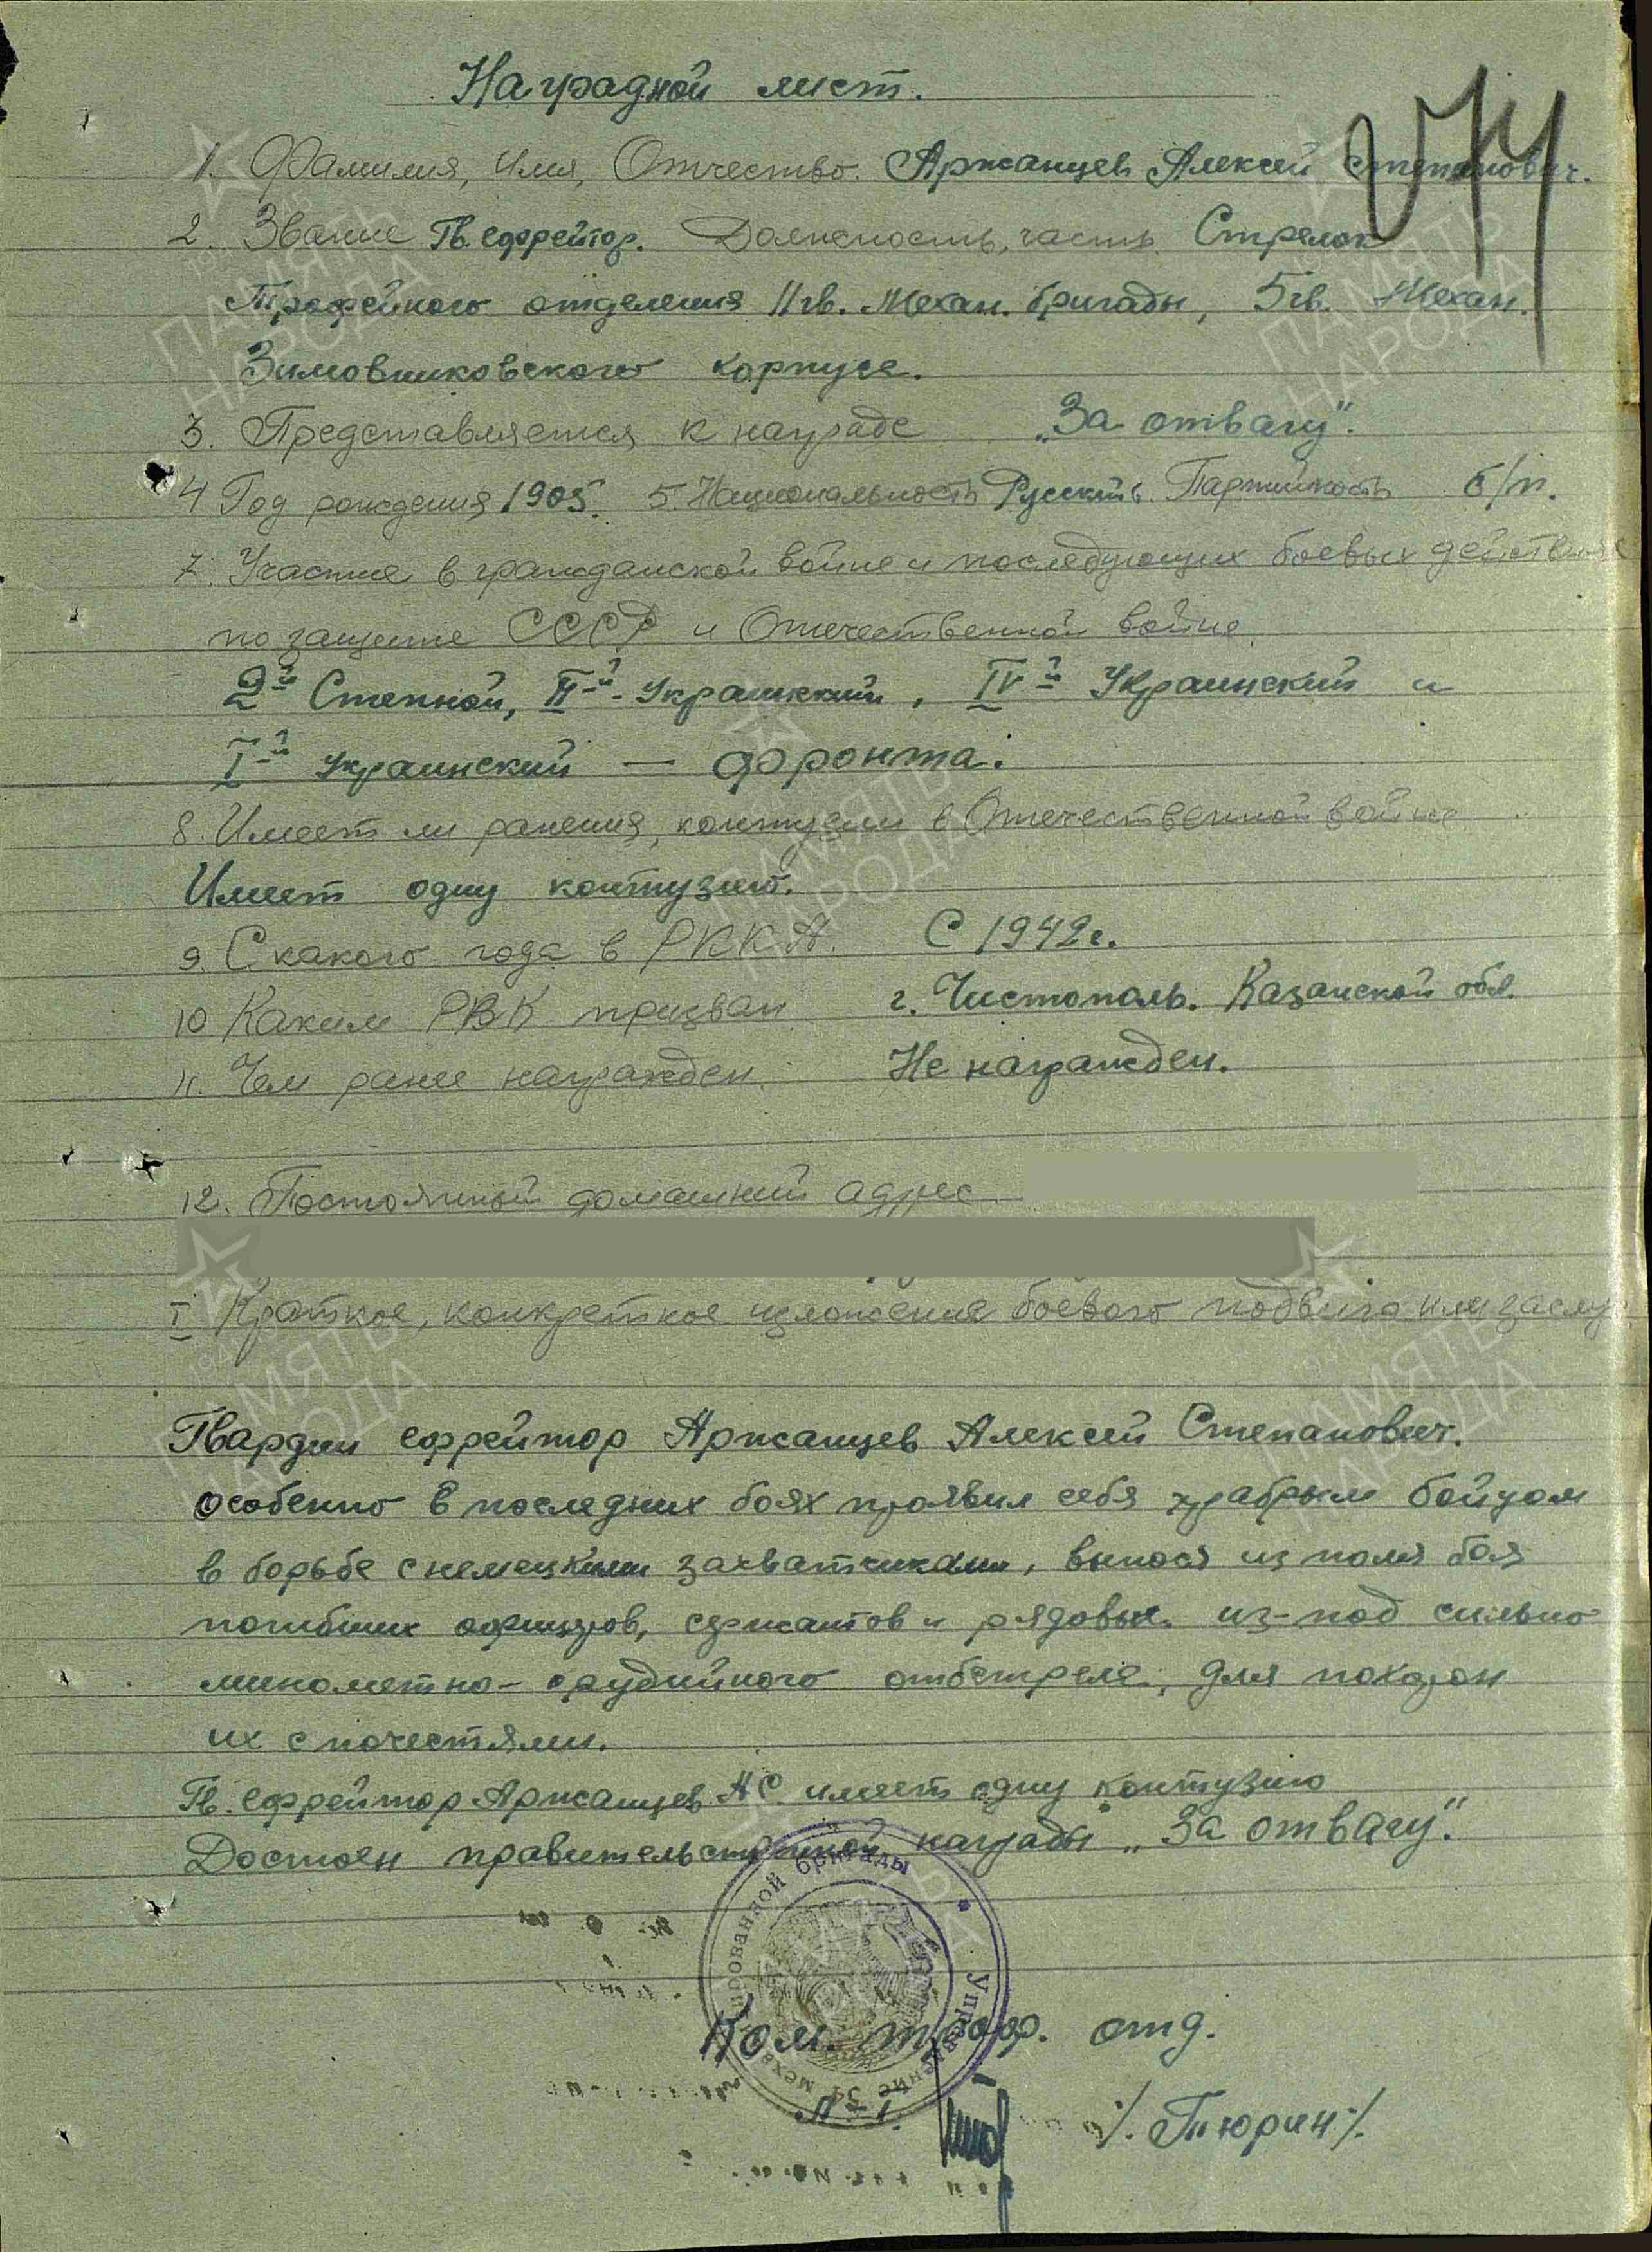 Наградной лист.
1. Фамилия, Имя, Отчество. Аржанцев Алексей Степанович.
2. Звание Гв. ефрейтор. Должность, часть Стрелок
Трофейного отделения 11 гв. Механ. бригады, 5 гв. Механ.
Зимовниковского корпуса.
3. Представляется к награде „За отвагу".
4 Год рождения 1905. 5. Национальность Русский 6. Партийность б/п.
7. Участие в гражданской войне и последующих боевых действиях
по защите СССР и Отечественной войне.
2й Степной, IIй - Украинский, IVй Украинский и
Iй Украинский — фронта.
8. Имеет ли ранения, контузии в Отечественной войне
Имеет одну контузию.
9. С какого года в РККА. С 1942 г.
10 Каким РВК призван г. Чистополь. Казанской обл.
11. Чем ранее награжден. Не награжден.
12. Постоянный домашний адрес
I Краткое, конкретное изложения боевого подвига или заслуг
Гвардии ефрейтор Аржанцев Алексей Степанович.
особенно в последних боях проявил себя храбрым бойцом
в борьбе с немецкими захватчиками, вынося из поля боя
погибших офицеров, сержантов и рядовых из-под сильно
минометно-орудийного отбстрела, для похорон
их с почестями.
Гв. ефрейтор Аржанцев АС имеет одну контузию
Достоен правительственной награды „За отвагу".
Управление 34 механизированной бригады
Ком. троф. отд.
/. Тюрин /.
ПАМЯТЬ НАРОДА